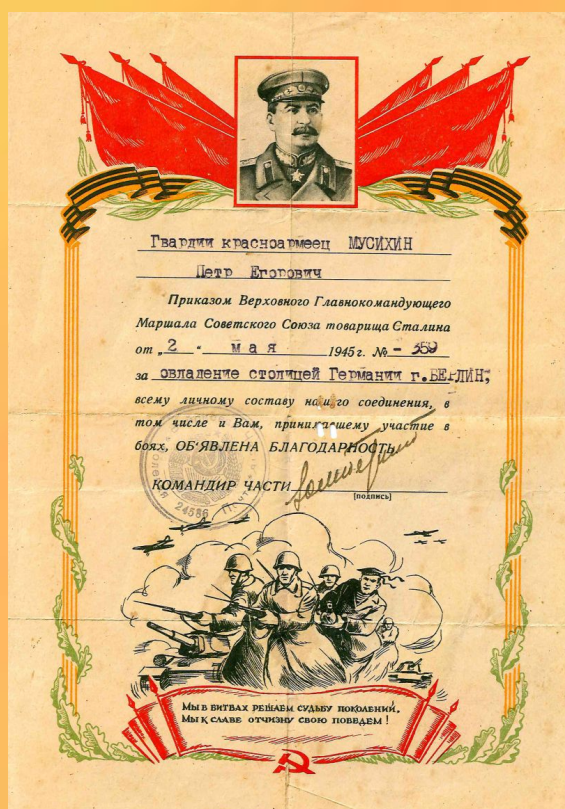 Гвардии красноармеец МУСИХИН
Петр Егорович
Приказом Верховного Главнокомандующего
Маршала Советского Союза товарища Сталина
от „2 " мая 1945 г. № - 359
за овладение столицей Германии г.БЕРЛИН,
всему личному составу нашего соединения, в
том числе и Вам, принимавшему участие в
боях, ОБ'ЯВЛЕНА БЛАГОДАРНОСТЬ.
КОМАНДИР ЧАСТИ
(подпись)
Полевая Почта
24586
МЫ В БИТВАХ РЕШАЕМ СУДЬБУ ПОКОЛЕНИЙ,
МЫ К СЛАВЕ ОТЧИЗНУ СВОЮ ПОВЕДЕМ!